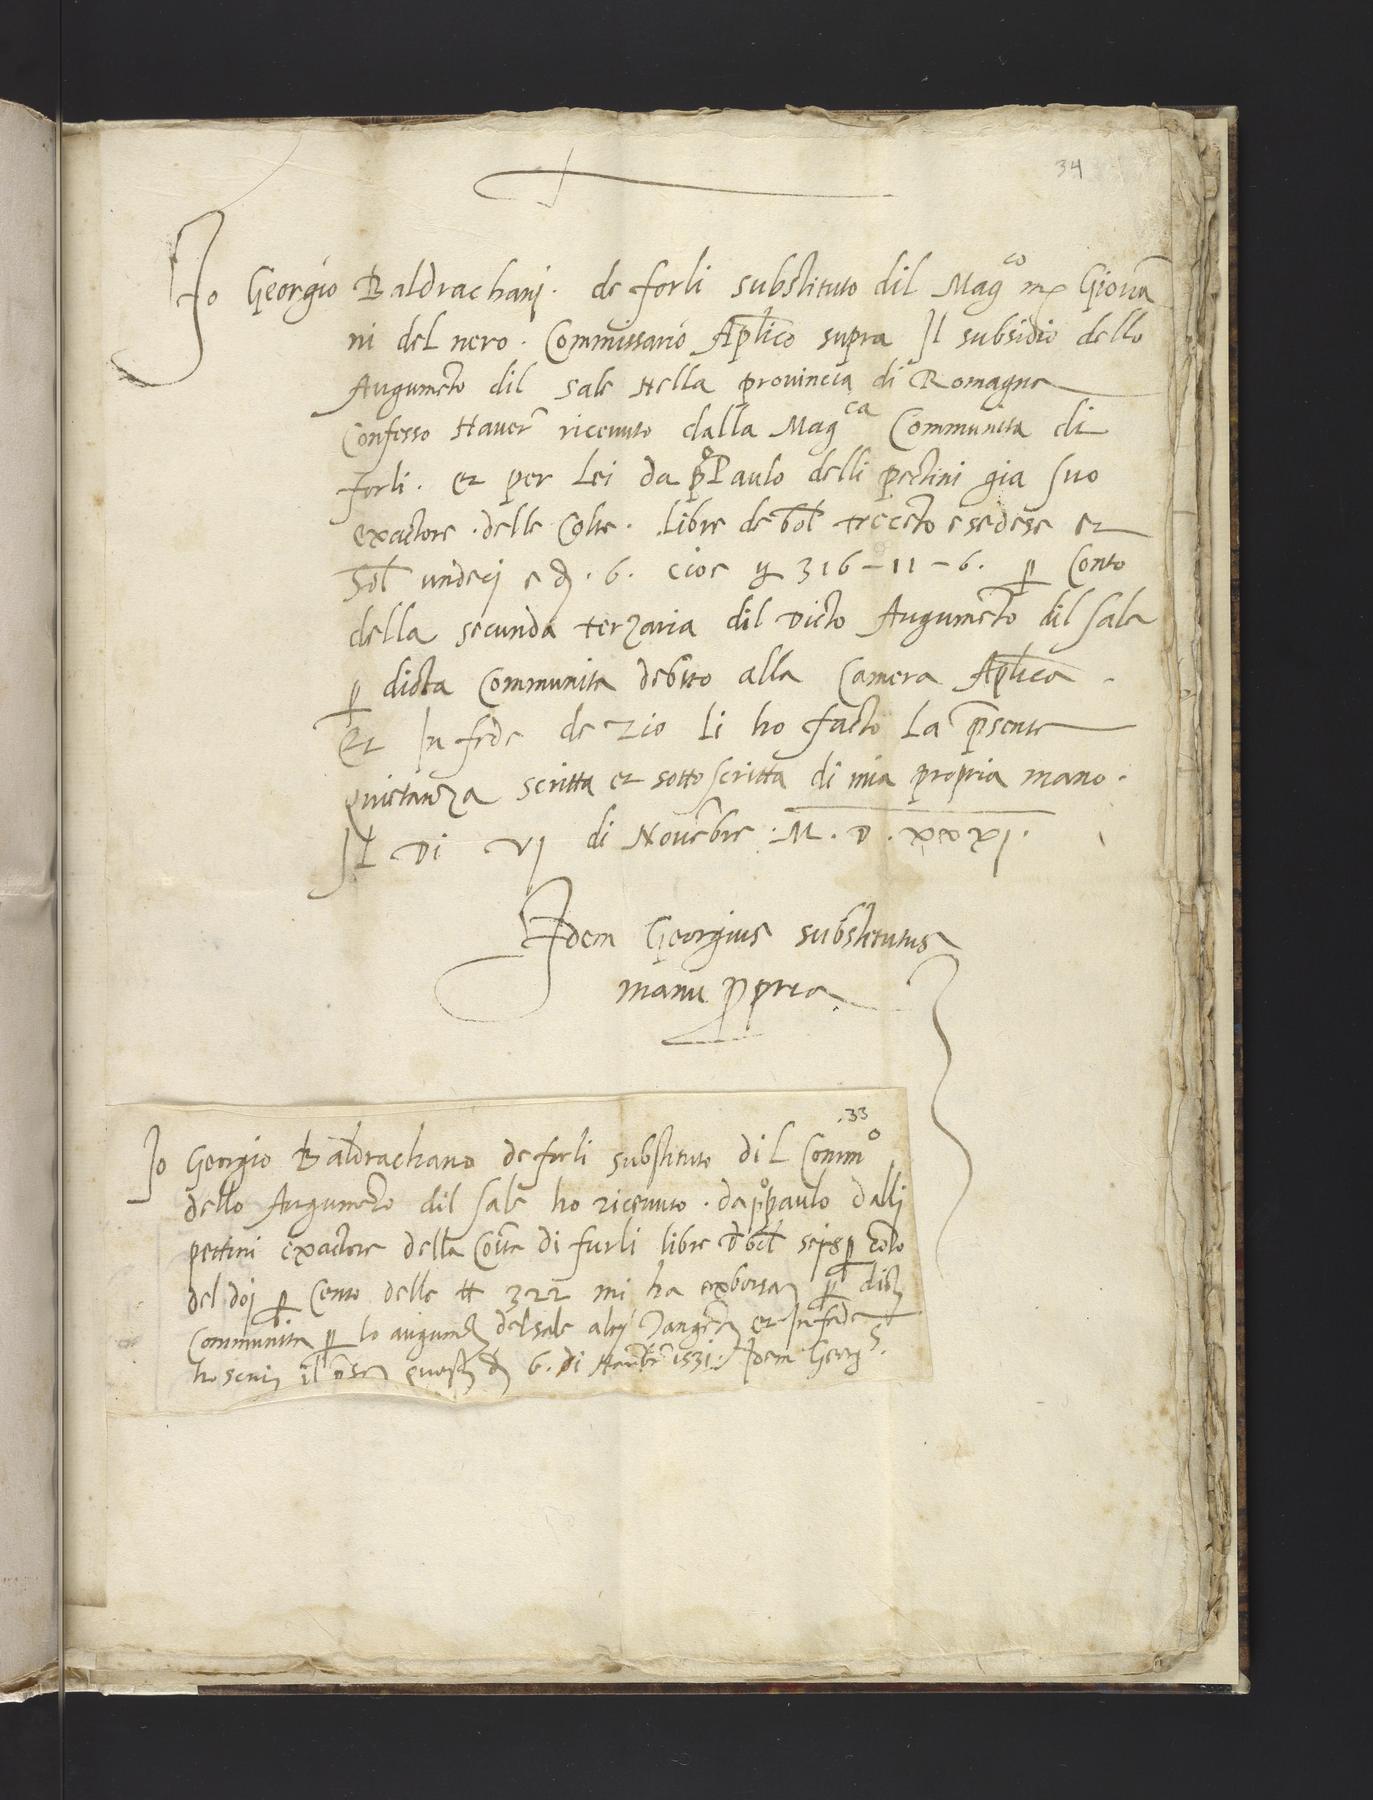 34
Io Georgio Baldrachanj. de forli substituto dil Mag.co m. Giouā
ni del nero. Commissario Ap̄lico supra Il subsidio dello
Augumēto dil sale Nella prouincia di Romagna
Confesso Hauer̄ riceuuto dalla Magca Communita di
forli. et per Lei da p.o Paulo delli pectini gia suo
exactore. delle Colte. Libre de bol̄ trecēto e sedese et
Sol̄ undecj e d. 6. cioe ℔ 316-11-6. ꝑ Conto
della secunda terzaria dil Dicto Augumēto dil sale
ꝑ dicta Communita debito alla Camera Ap̄lica.
Et In fede de zio li ho facto La p̄sente
quietanza scritta et sottoscritta di mia propria mano.
Il Di VI di Nouēbre. M. D. xxxj.
Idem Georgius substitutus
manu ꝓpria
33
Io Georgio Baldrachano de forli substituto dil Commo
dello Augumēto dil sale ho riceuuto. da p.o paulo dallj
pettini exactore della Coīta di furli libre d bol̄ seis ꝑ cōto
del doj ꝑ Cento delle ℔ 322 mi ha exborsa ꝑ dicta
Communita ꝑ lo augum del sale et In fede
ho sc il p̄se 6. di 1531. Idem Georgs.